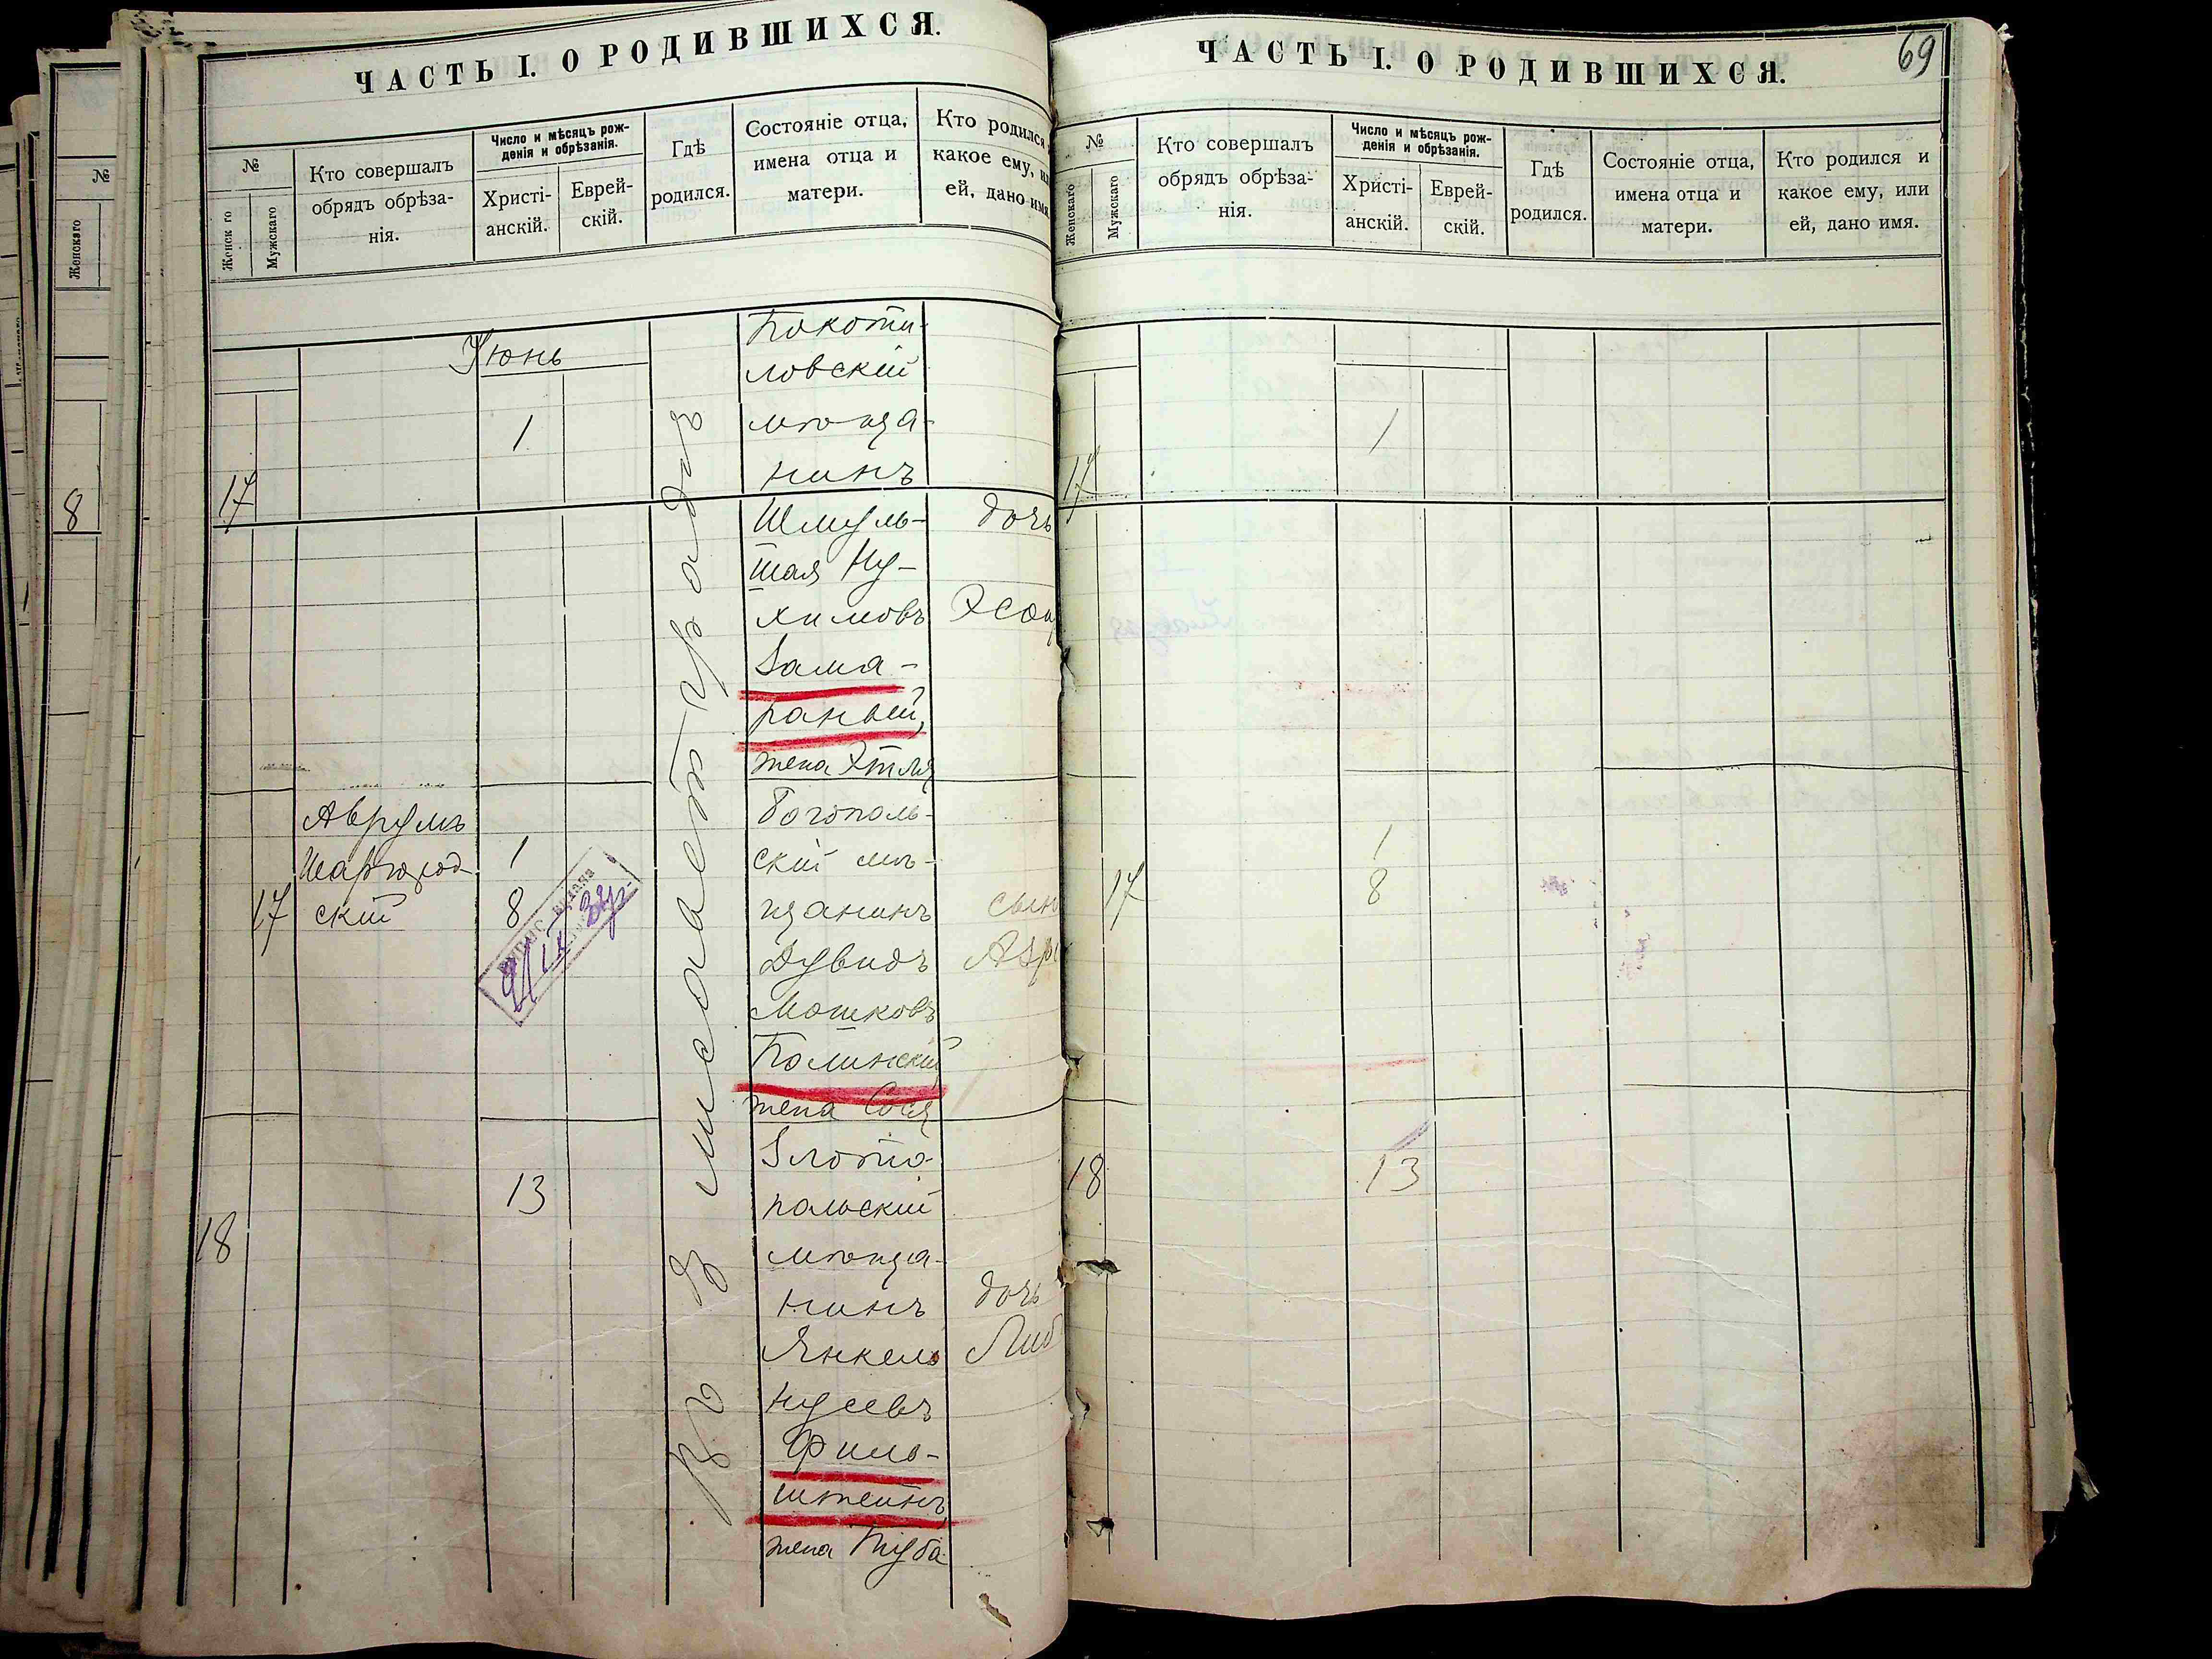 ЧАСТЬ I. О РОДИВШИХСЯ.
№
Женск го
Мужскаго
Кто совершалъ
обрядъ обрѣза-
нія.
Число и мѣсяцъ рож-
денія и обрѣзанія.
Христі-
анскій.
Еврей-
скій.
Гдѣ
родился.
Состояніе отца,
имена отца и
матери.
Кто родился
какое ему, ил
ей, дано имя
Іюнь
17
1
мѣща-
нинъ
Шмуль-
шая Ну-
химовъ
Зама-
раный,
жена Этля
дочь
17
Аврумъ
Шаргород-
скій
1
8
Богополь-
скій мѣ-
щанинъ
Дувидъ
Мошковъ
жена Сося
сынъ
18
13
Злото-
польскій
мѣща-
нинъ
Янкель
Нусевъ
Филь-
штейнъ,
жена Туба
дочь
Либ
Въ г. Елисаветградѣ
№
Женскаго
8
ЧАСТЬ I. О РОДИВШИХСЯ.
69
№
Женскаго
Мужскаго
Кто совершалъ
обрядъ обрѣза-
нія.
Число и мѣсяцъ рож-
денія и обрѣзанія.
Христі-
анскій.
Еврей-
скій.
Гдѣ
родился.
Состояніе отца,
имена отца и
матери.
Кто родился и
какое ему, или
ей, дано имя.
17
1
17
1
8
18
13